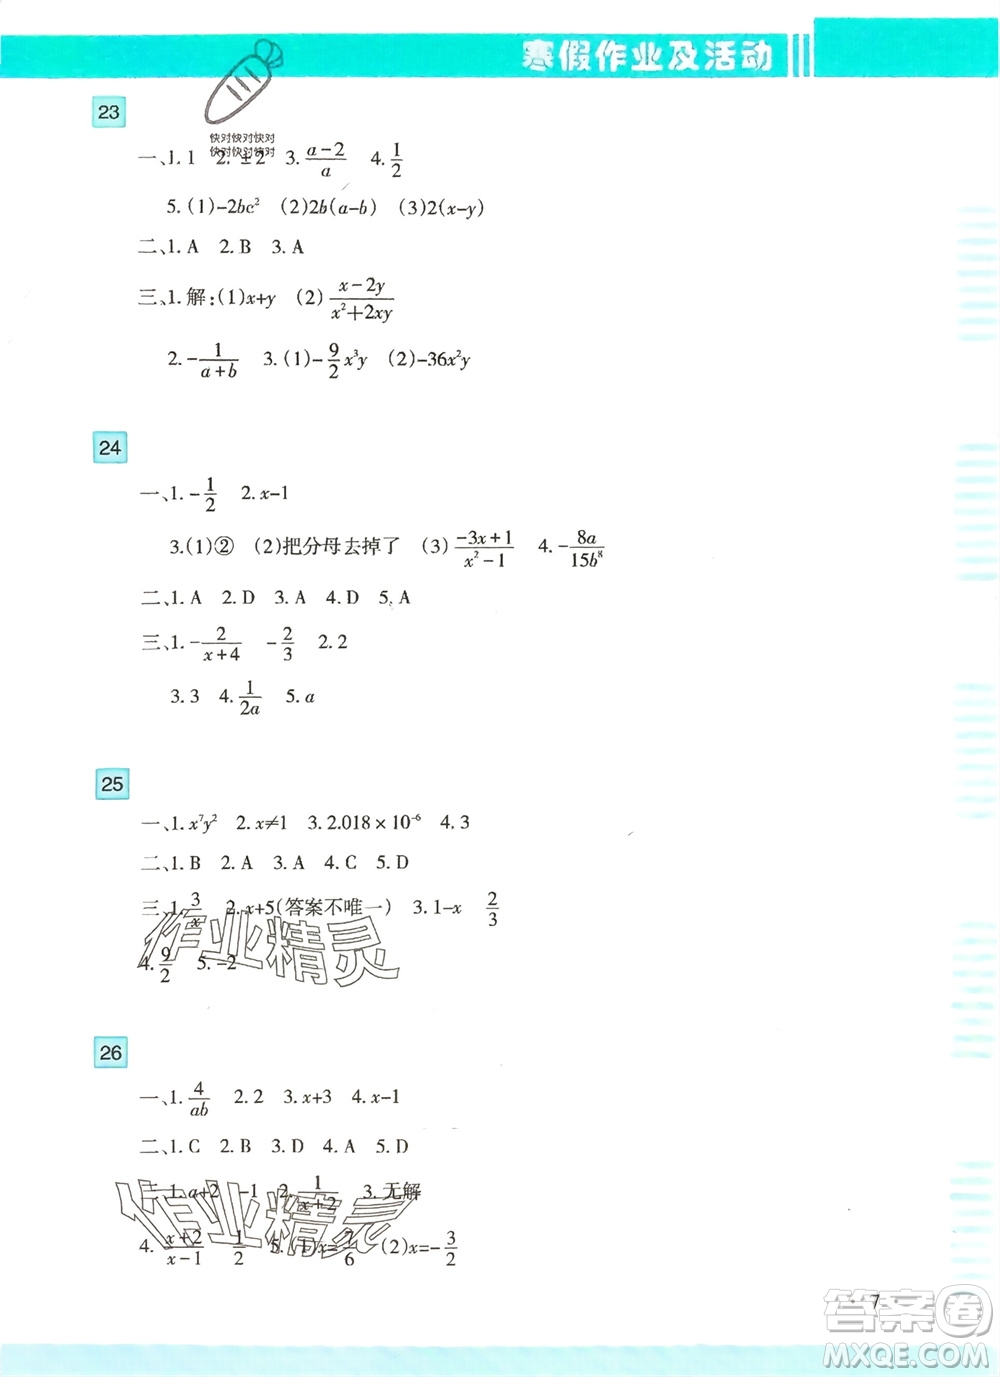 寒假作业及活动
23
快对快对快对
快对快对快对
一、1. 1 2. ±2 3. \frac{a-2}{a} 4. \frac{1}{2}
5. (1)-2bc² (2)2b(a-b) (3)2(x-y)
二、1. A 2. B 3. A
三、1. 解:(1)x+y (2)\frac{x-2y}{x²+2xy}
2. -\frac{1}{a+b} 3. (1)-\frac{9}{2}x³y (2)-36x²y
24
一、1. -\frac{1}{2} 2. x-1
3. (1)② (2)把分母去掉了 (3)\frac{-3x+1}{x²-1} 4. -\frac{8a}{15b⁸}
二、1. A 2. D 3. A 4. D 5. A
三、1. -\frac{2}{x+4} -\frac{2}{3} 2. 2
3. 3 4. \frac{1}{2a} 5. a
25
一、1. x⁷y² 2. x≠1 3. 2.018×10⁻⁶ 4. 3
二、1. B 2. A 3. A 4. C 5. D
三、1. \frac{3}{x} 2. x+5(答案不唯一) 3. 1-x \frac{2}{3}
作业精灵
4. \frac{9}{2} 5. -2
26
一、1. \frac{4}{ab} 2. 2 3. x+3 4. x-1
二、1. C 2. B 3. D 4. A 5. D
三、1. a+2 -1 2. \frac{1}{x+2} 3. 无解
作业精灵
4. \frac{x+2}{x-1} \frac{1}{2} 5. (1)x=\frac{7}{6} (2)x=-\frac{3}{2}
· 7 ·
答案卷
MXQE.COM